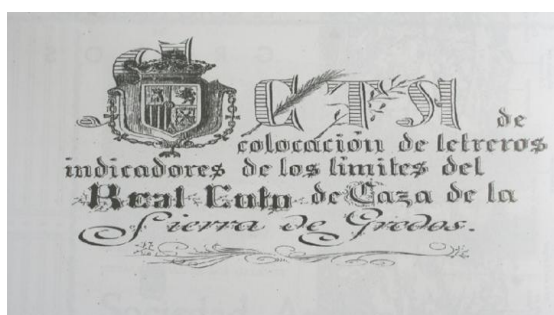 ACTA de
colocación de letreros
indicadores de los límites del
Real Coto de Caza de la
Sierra de Gredos.